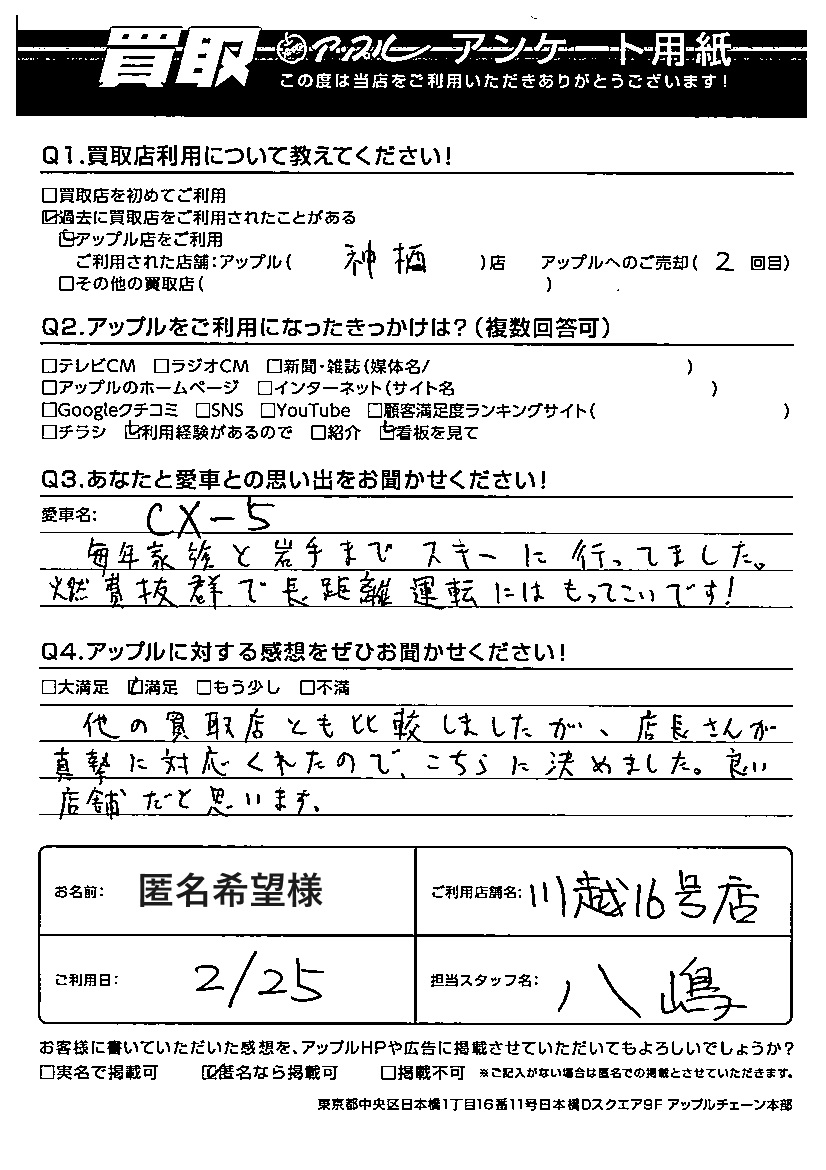 買取 アップル アンケート用紙
この度は当店をご利用いただきありがとうございます!
Q1.買取店利用について教えてください!
□買取店を初めてご利用
☑過去に買取店をご利用されたことがある
☑アップル店をご利用
ご利用された店舗:アップル( 神栖 )店 アップルへのご売却( 2 回目)
□その他の買取店( )
Q2.アップルをご利用になったきっかけは?(複数回答可)
□テレビCM □ラジオCM □新聞・雑誌(媒体名/ )
□アップルのホームページ □インターネット(サイト名 )
□Googleクチコミ □SNS □YouTube □顧客満足度ランキングサイト( )
□チラシ ☑利用経験があるので □紹介 ☑看板を見て
Q3.あなたと愛車との思い出をお聞かせください!
愛車名: CX-5
毎年家族と岩手までスキーに行ってました。
燃費抜群で長距離運転にはもってこいです!
Q4.アップルに対する感想をぜひお聞かせください!
□大満足 ☑満足 □もう少し □不満
他の買取店とも比較しましたが、店長さんが
真摯に対応くれたので、こちらに決めました。良い
店舗だと思います。
お名前: 匿名希望様 ご利用店舗名: 川越16号店
ご利用日: 2/25 担当スタッフ名: 八嶋
お客様に書いていただいた感想を、アップルHPや広告に掲載させていただいてもよろしいでしょうか?
□実名で掲載可 ☑匿名なら掲載可 □掲載不可 ※ご記入がない場合は匿名での掲載とさせていただきます。
東京都中央区日本橋1丁目16番11号日本橋Dスクエア9F アップルチェーン本部